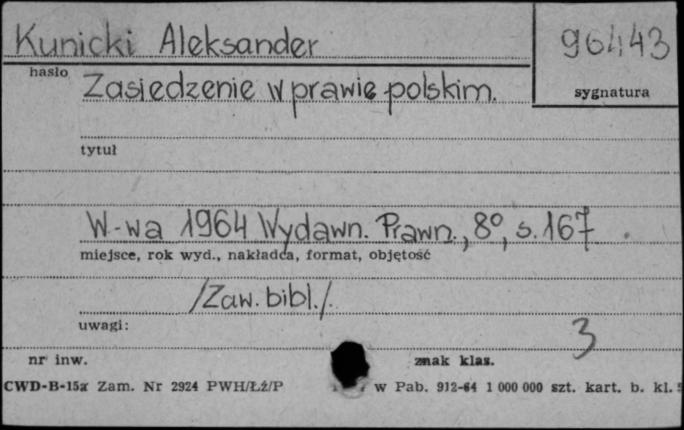 Kunicki Aleksander
96443
hasło
sygnatura
Zasiedzenie w prawie polskim.
tytuł
W-wa 1964 Wydawn. Prawn., 8°, s. 167
miejsce, rok wyd., nakładca, format, objętość
/Zaw. bibl./.
uwagi:
3
nr inw.
znak klas.
CWD-B-15a Zam. Nr 2924 PWH/Łź/P
w Pab. 912-64 1 000 000 szt. kart. b. kl.